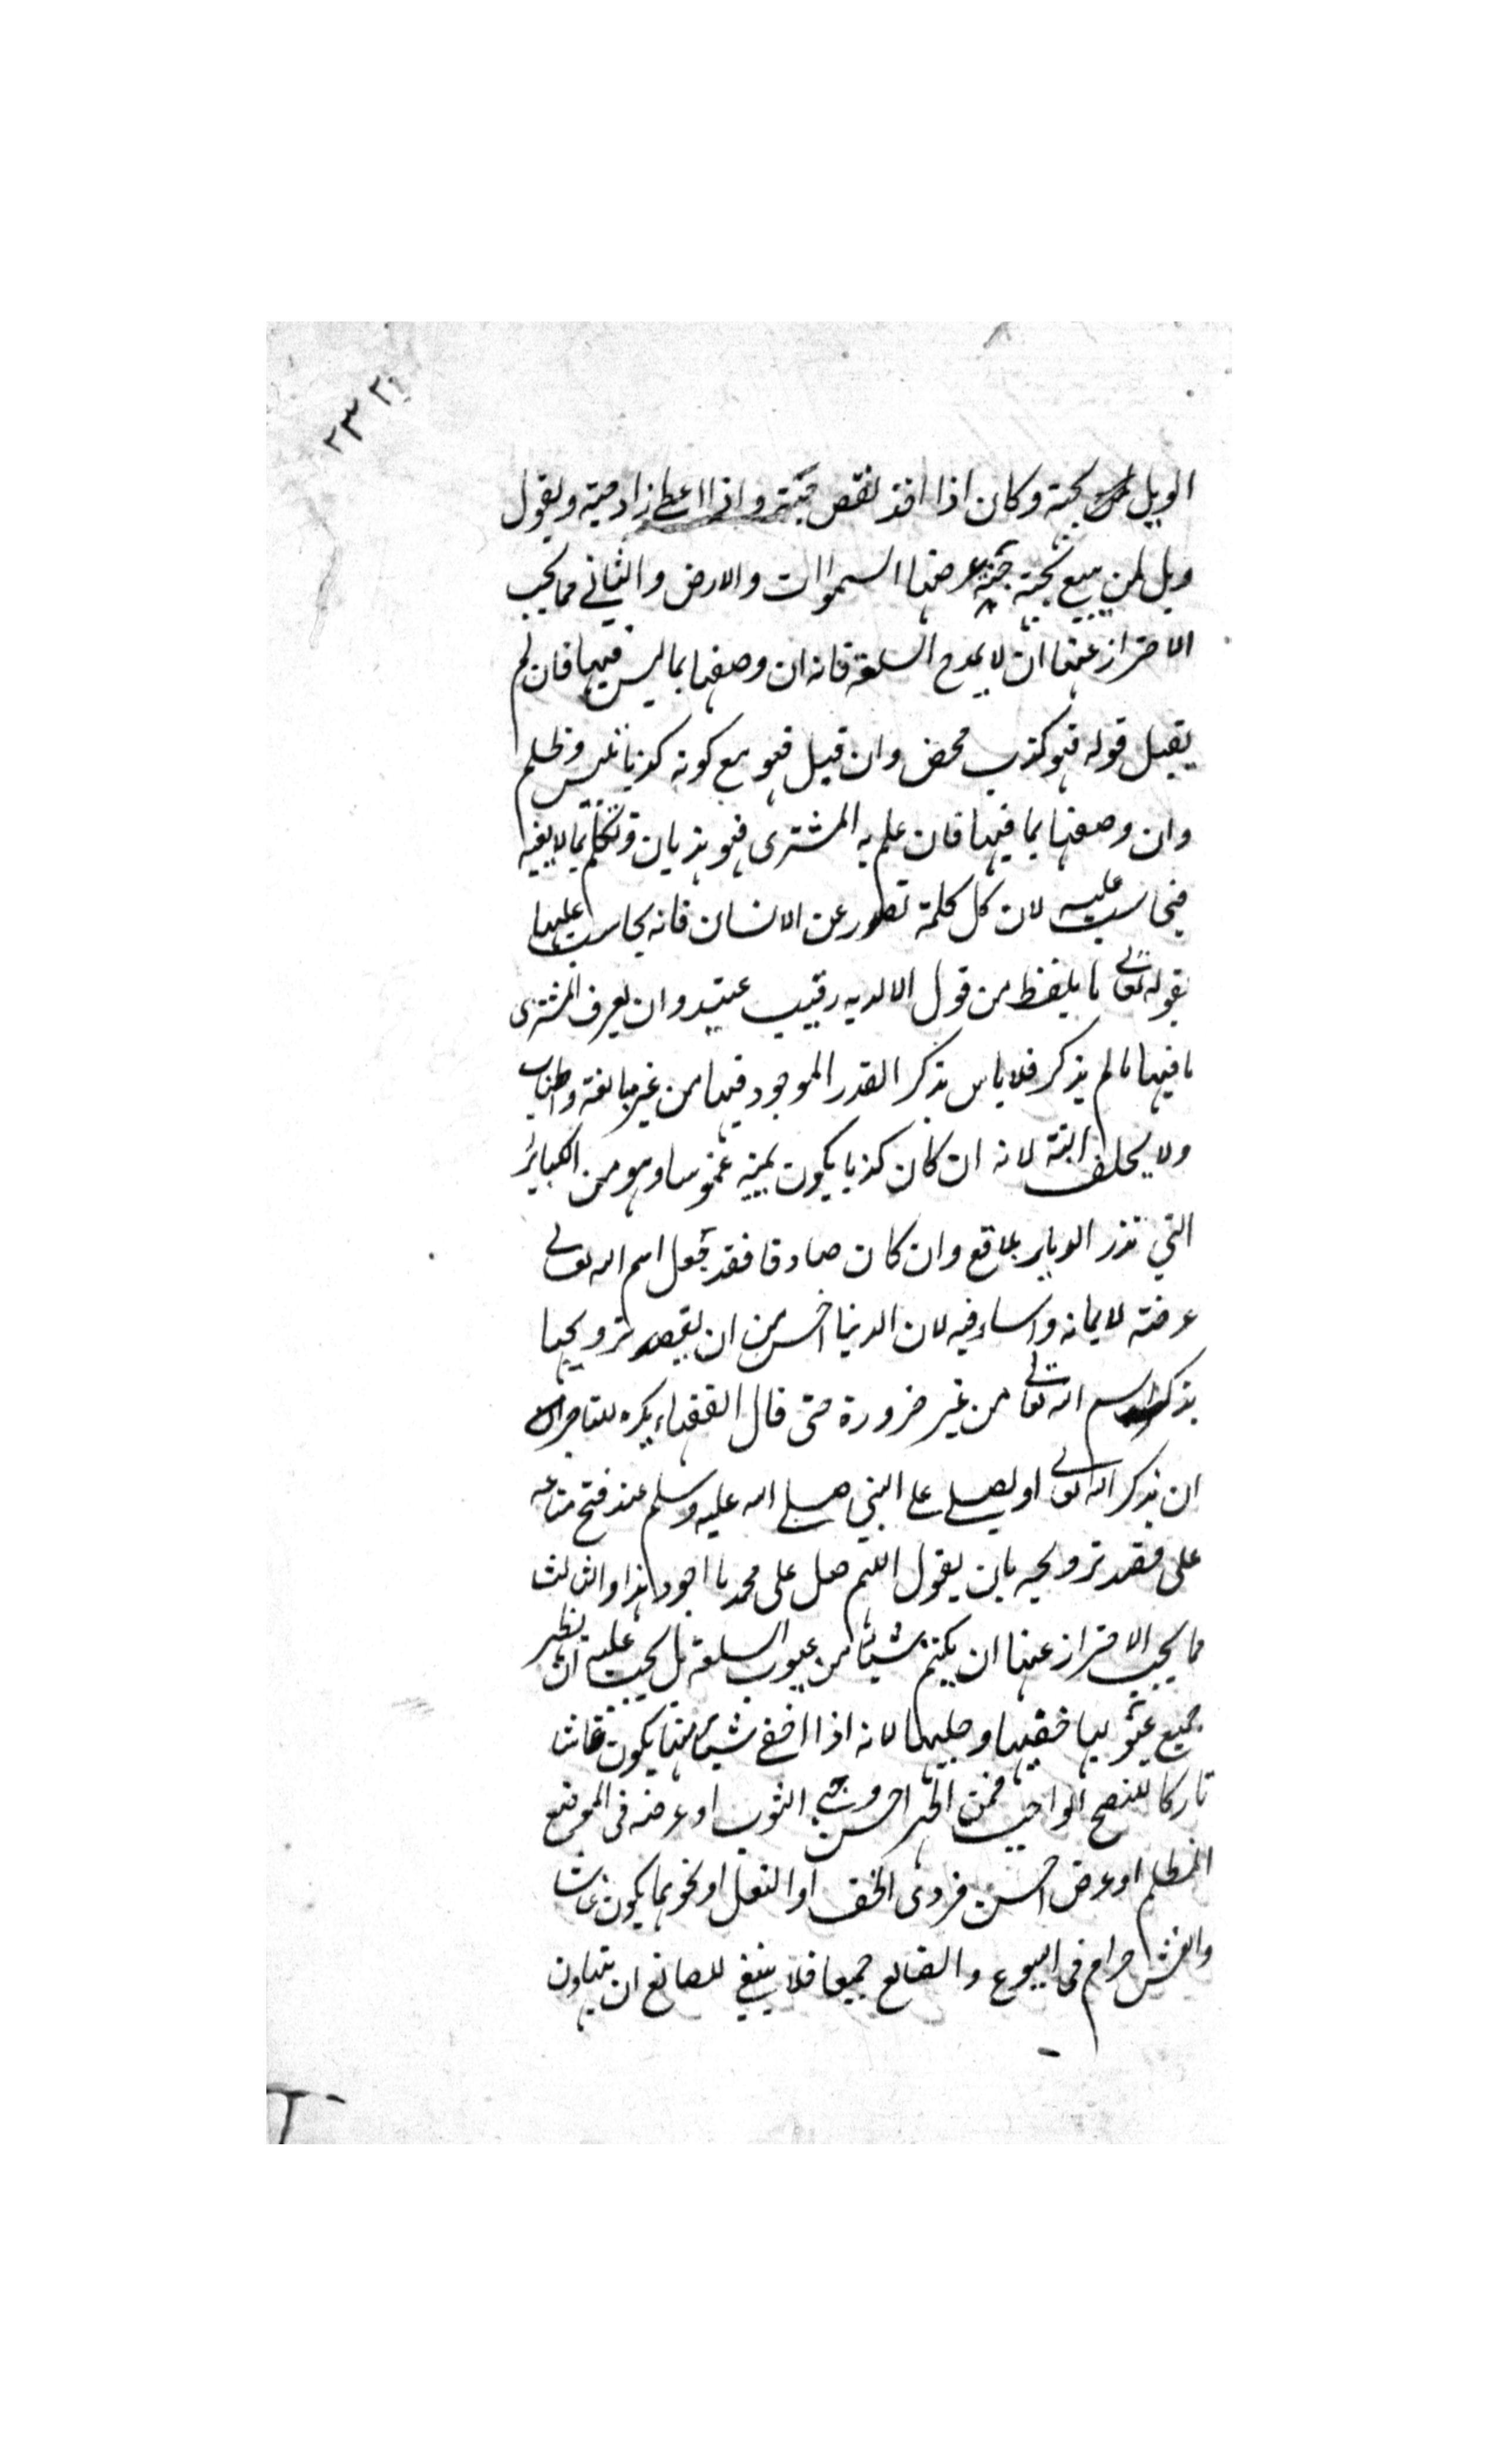 ٢٣ ٢١
الويل بحبة وكان اذا اخذ نقص حبة واذا اعطى زاد حبة ويقول
ويل لمن يبيع بحبة جنة عرضها السموات والارض والثاني مما يجب
الاحتراز عنها ان لا يمدح السلعة فانه ان وصفها بما ليس فيها فان لم
يقبل قوله فهو كذب محض وان قبل فهو مع كونه كذبا تلبيس وظلم
وان وصفها بما فيها فان علم به المشترى فهو هذيان وتكلم بما لا يعنيه
فيحاسب عليه لان كل كلمة تصدر عن الانسان فانه يحاسب عليها
بقوله تعالى ما يلفظ من قول الا لديه رقيب عتيد وان لم يعرف المشترى
ما فيها ما لم يذكر فلا باس بذكر القدر الموجود فيها من غير مبالغة واطناب
ولا يحلف البتة لانه ان كان كذبا يكون يمينه غموسا وهو من الكبائر
التي تذر الديار بلاقع وان كان صادقا فقد جعل اسم الله تعالى
عرضة لايمانه واساء فيه لان الدنيا اخس من ان يقصد ترويجها
بذكر اسم الله تعالى من غير ضرورة حتى قال الفقهاء يكره للتاجر
ان يذكر الله تعالى او يصلي على النبي صلى الله عليه وسلم عند فتح متاعه
على قصد ترويجه بان يقول اللهم صل على محمد ما اجود هذا والثالث
مما يجب الاحتراز عنها ان يكتم شيئا من عيوب السلعة بل يجب عليه ان يظهر
جميع عيوبها خفيها وجليها لانه اذا اخفى شيئا منها يكون غاشا
تاركا للنصح الواجب فمن اظهر احسن وجهي الثوب او عرضه فى الموضع
المظلم او عرض احسن فردى الخف او النعل او نحوهما يكون غاشا
والغش حرام فى البيوع والصنايع جميعا فلا ينبغي للصانع ان يتهاون